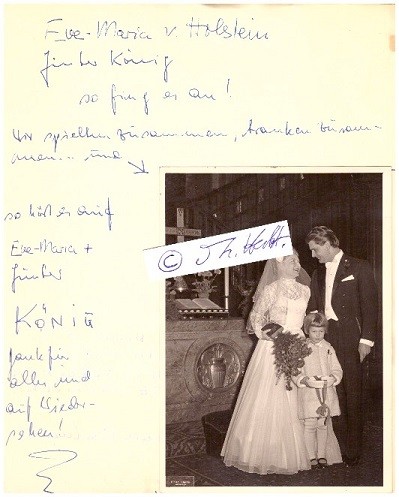 Eva-Maria v. Holstein
Günter König
so fing es an!
Wir spielten zusammen, tranken zusam-
men... und
so hört es auf
Eva-Maria +
Günter
KÖNIG
Dank für
alles und
auf Wieder-
sehen!
© Th. Hecht.